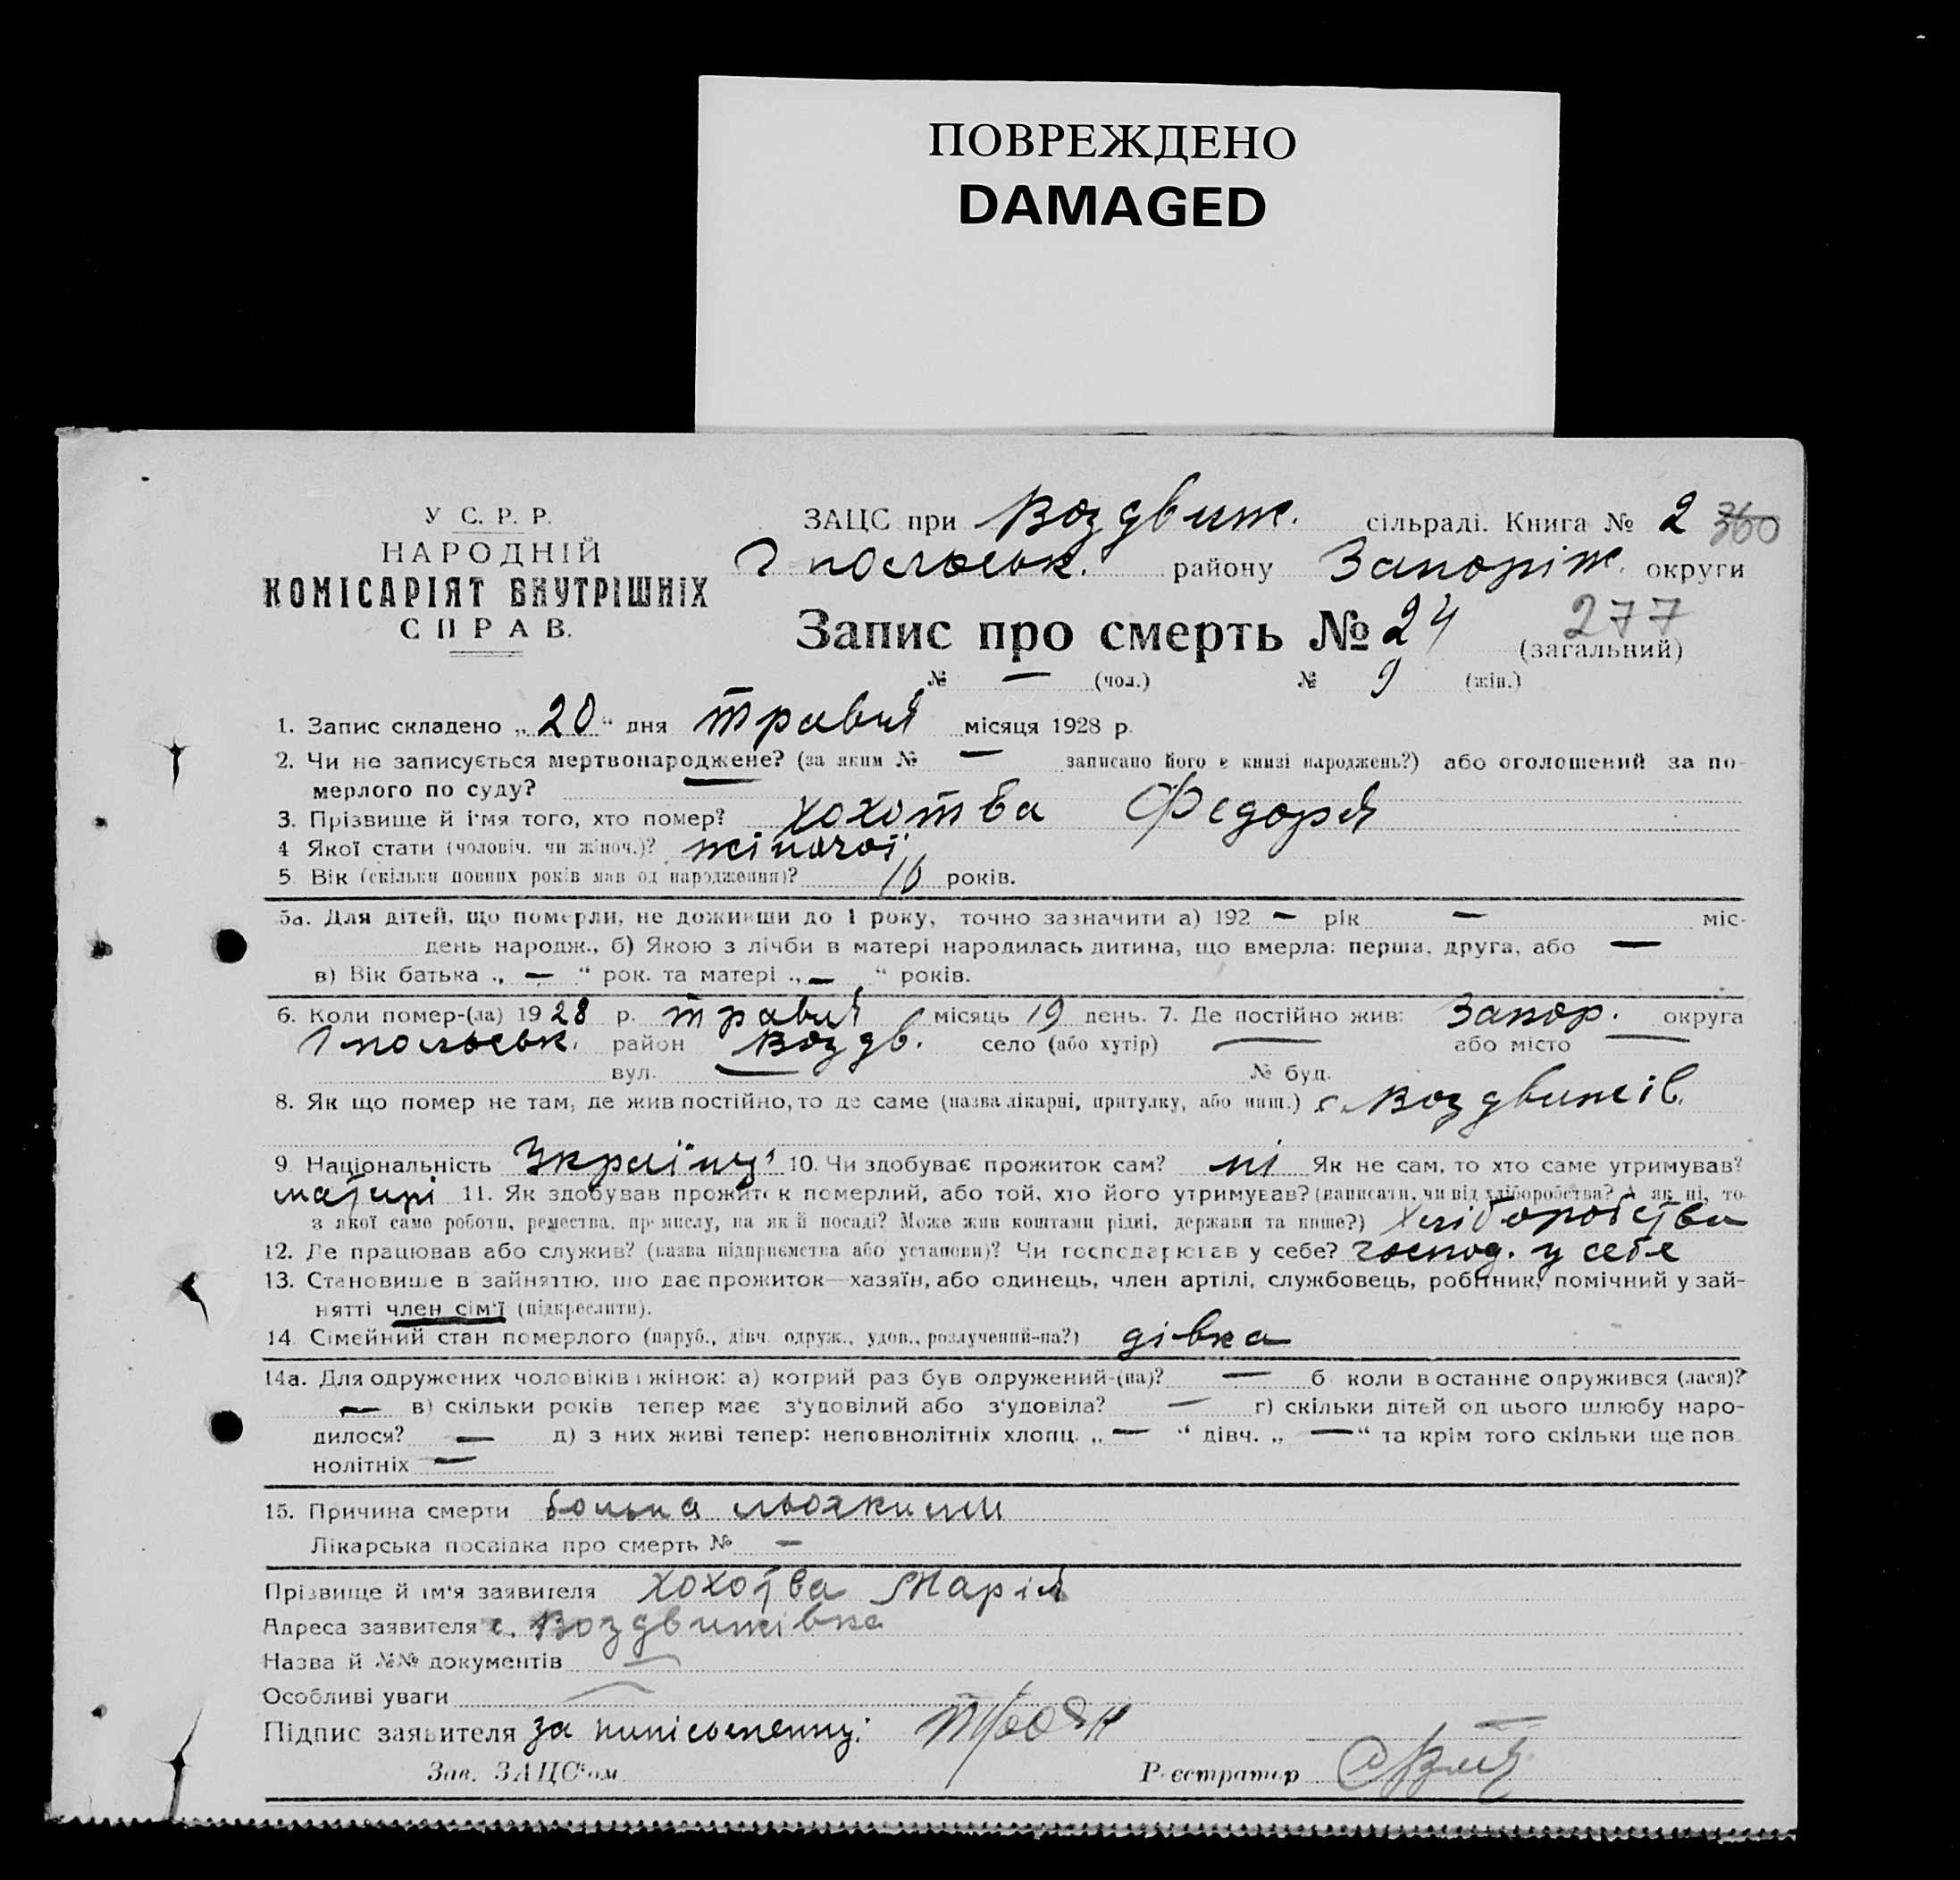 ПОВРЕЖДЕНО
DAMAGED
У С. Р. Р.
НАРОДНІЙ
КОМІСАРІЯТ ВНУТРІШНІХ
СПРАВ.
ЗАЦС при Воздвиж. сільраді. Книга № 2 360
Гпольськ. району Запоріж. округи
Запис про смерть № 24 277 (загальний)
№ — (чол.) № 9 (жін.)
1. Запис складено „20“ дня травня місяця 1928 р.
2. Чи не записується мертвонароджене? (за яким № — записано його в книзі народжень?) або оголошений за по-
мерлого по суду? —
3. Прізвище й ім'я того, хто помер? Хохотва Федоря
4 Якої стати (чоловіч. чи жіноч.)? жіночої
5. Вік (скільки повних років мав од народження)? років.
5а. Для дітей, що померли, не доживши до 1 року, точно зазначити а) 192 — рік — міс-
день народж., б) Якою з лічби в матері народилась дитина, що вмерла: перша, друга, або —
в) Вік батька „ — “ рок. та матері „ — “ років.
6. Коли помер-(ла) 1928 р. травня місяць 19 день. 7. Де постійно жив: Запор. округа
Гпольськ. район Воздв. село (або хутір) — або місто —
вул. — № буд.
8. Як що помер не там, де жив постійно, то де саме (назва лікарні, притулку, або инш.) с. Воздвижів.
9. Національність Україну 10. Чи здобуває прожиток сам? ні Як не сам, то хто саме утримував?
матирі 11. Як здобував прожиток померлий, або той, хто його утримував? (написати, чи від хліборобства? А як ні, то
з якої саме роботи, ремества, промислу, на якій посаді? Може жив коштами рідні, держави та инше?) Хліборобства
12. Де працював або служив? (назва підприємства або установи)? Чи господарював у себе? господ. у себе
13. Становише в зайняттю, що дає прожиток—хазяїн, або одинець, член артілі, службовець, робітник, помічний у зай-
нятті член сім'ї (підкреслити).
14. Сімейний стан померлого (паруб., дівч. одруж., удов., розлучений-на?) дівка
14а. Для одружених чоловіків і жінок: а) котрий раз був одружений-(на)? — б) коли в останнє одружився (лася)?
— в) скільки років тепер має з'удовілий або з'удовіла? — г) скільки дітей од цього шлюбу наро-
дилося? — д) з них живі тепер: неповнолітніх хлопц. „ — “ дівч. „ — “ та крім того скільки ще пов
нолітніх —
15. Причина смерти больна льогкими
Лікарська посвідка про смерть № —
Прізвище й ім'я заявителя Хохотва Марія
Адреса заявителя с. Воздвижівка
Назва й №№ документів —
Особливі уваги —
Підпис заявителя за нипісьменну: Троян
Зав. ЗАЦС'ом Реєстратор